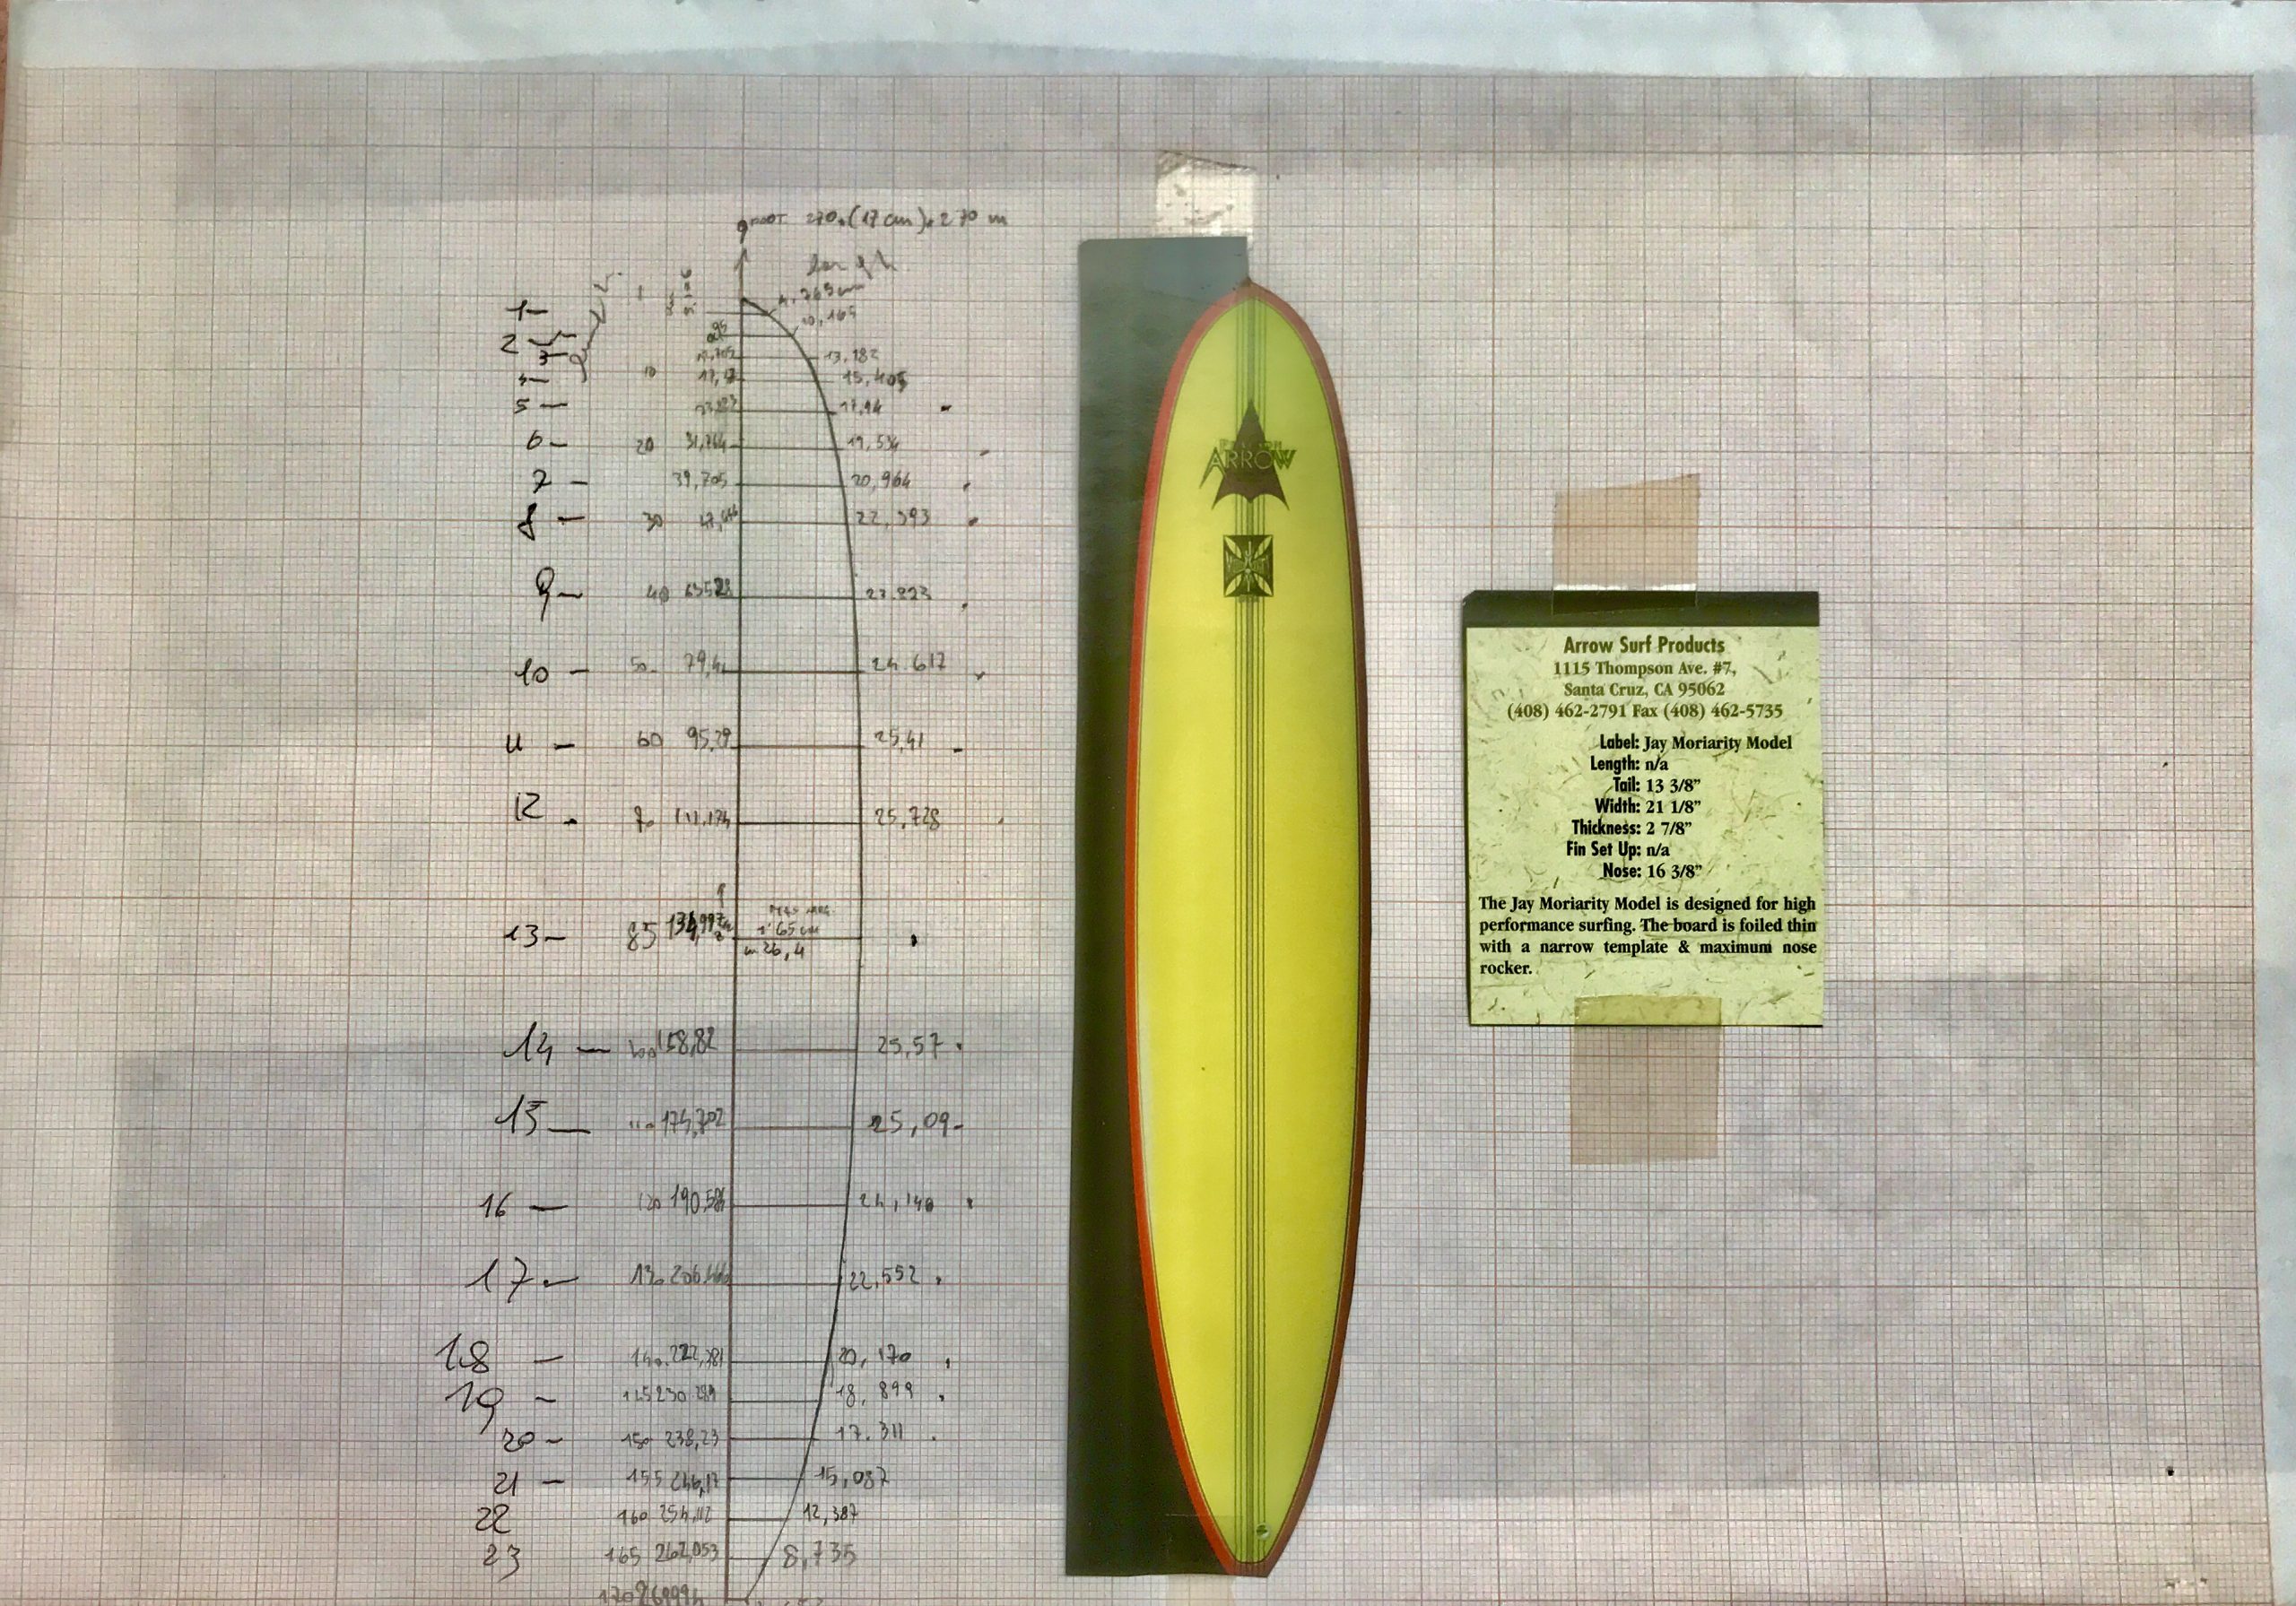 270.(17 cm).270 m
1-
4,763 cm
10,165
2
3-
13,182
10 15,405
5 -
17,94
6- 20 31,764 19,534
7 - 39,705 20,964
8 - 30 22,393
9- 40 63528 23.223
10 - 50- 79,4 24.617
11 - 60 95,29 25,41 -
12 . 111,174 25,728
13- 85
1'65 cm
26,4
14 - 158,82 25,57 .
15 - 174,702 25,09-
16 - 120 190,584 24,140
17 - 130 206,466 22,552 .
18 - 140. 222,381 20,170
19 - 145 230 18,899
20- 150 238,23 17.311
21 - 155 246,17 15,087
22 160 254,112 12,387
23 165 262,053 8,735
ARROW
Arrow Surf Products
1115 Thompson Ave. #7,
Santa Cruz, CA 95062
(408) 462-2791 Fax (408) 462-5735
Label: Jay Moriarity Model
Length: n/a
Tail: 13 3/8”
Width: 21 1/8”
Thickness: 2 7/8”
Fin Set Up: n/a
Nose: 16 3/8”
The Jay Moriarity Model is designed for high
performance surfing. The board is foiled thin
with a narrow template & maximum nose
rocker.